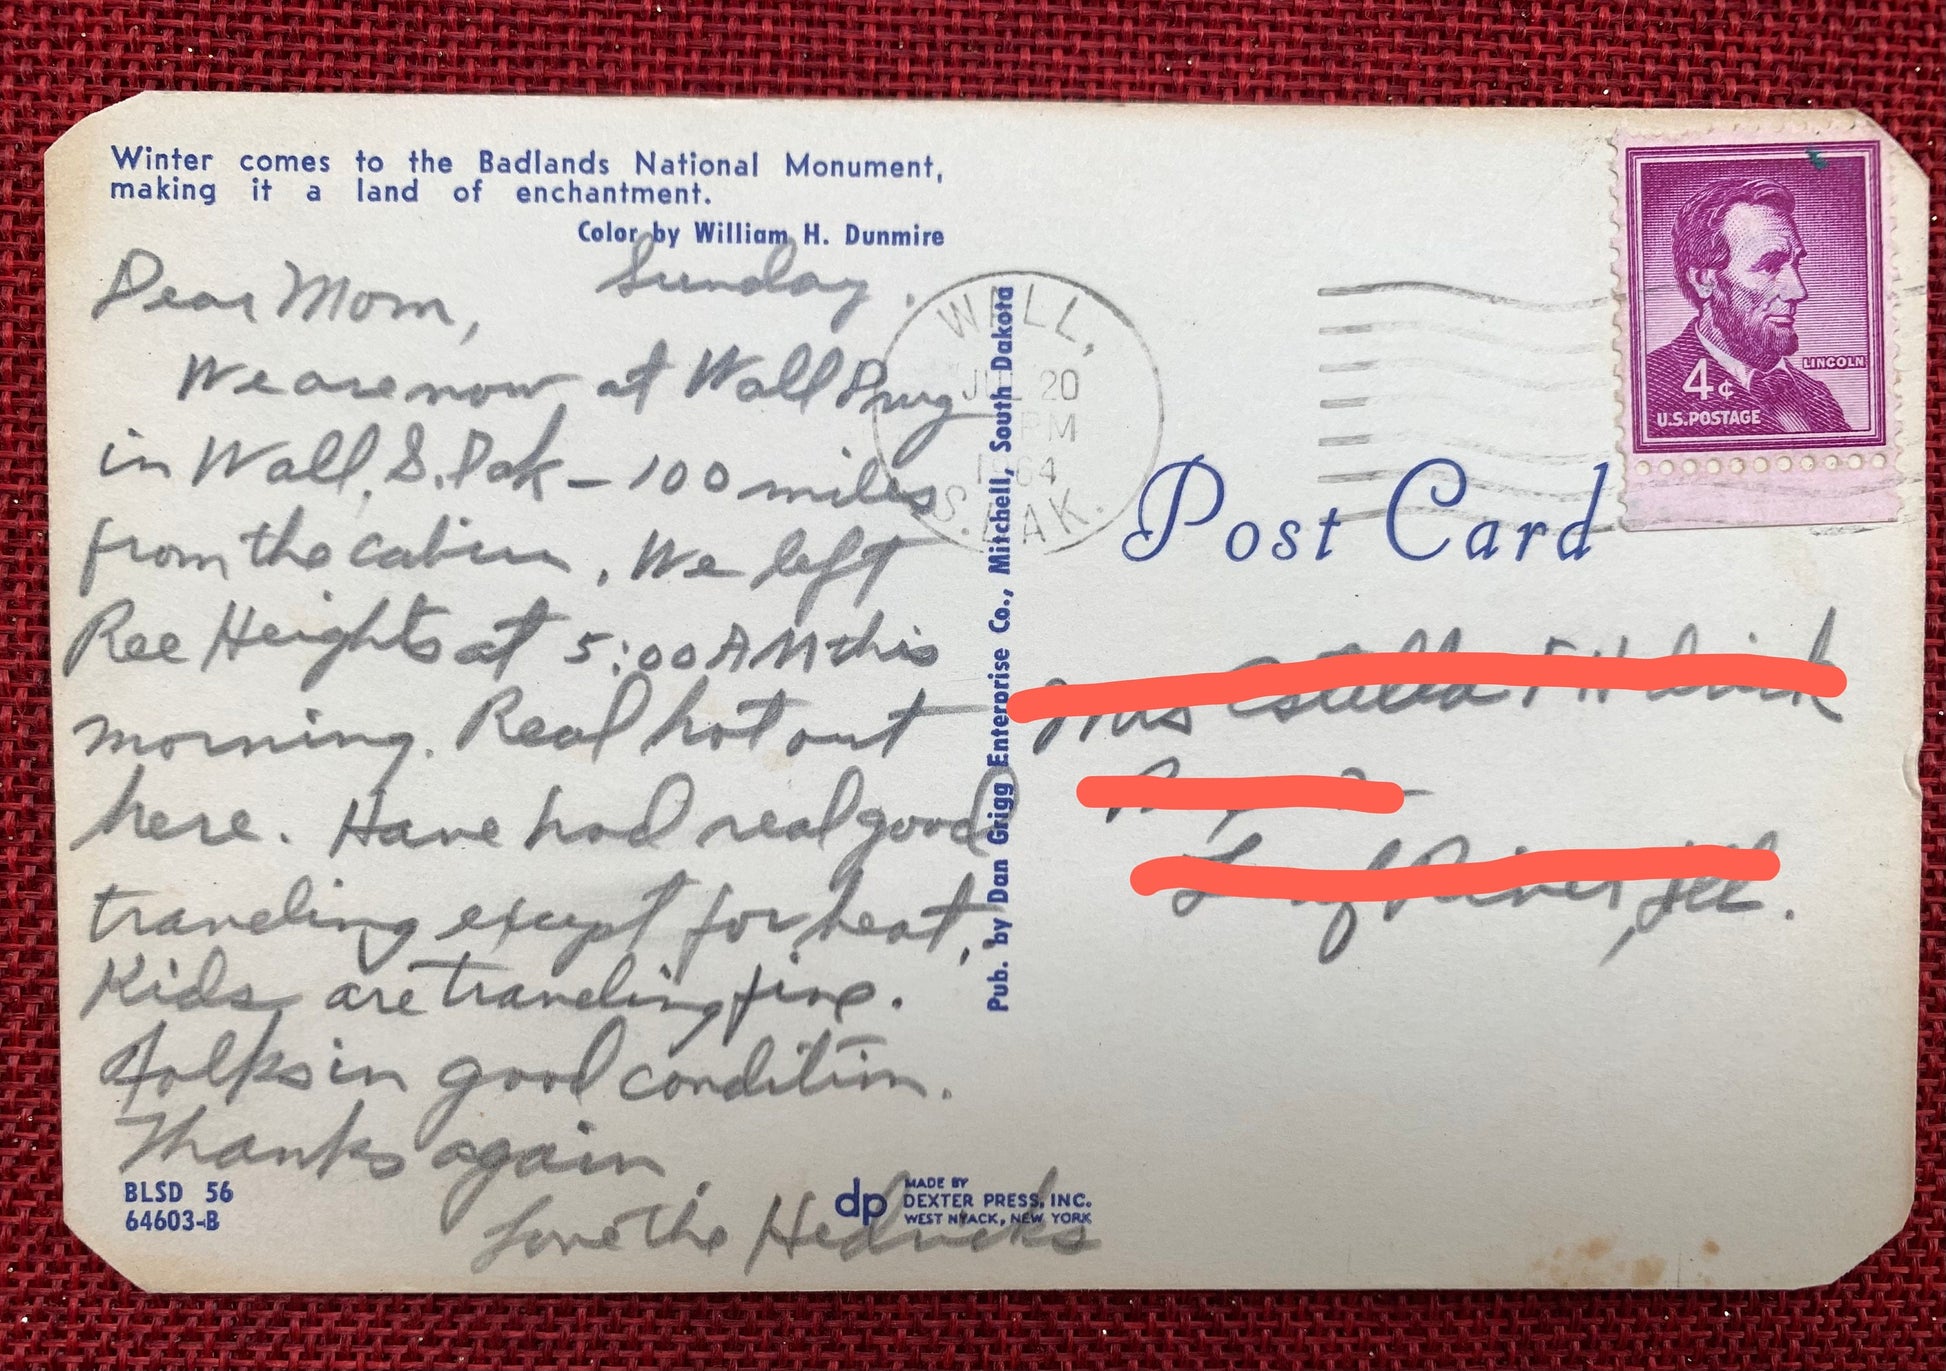 Winter comes to the Badlands National Monument,
making it a land of enchantment.
Color by William H. Dunmire
Sunday.
Dear Mom,
We are now at Wall Drug
in Wall, S. Dak – 100 miles
from the cabin. We left
Ree Heights at 5:00 AM this
morning. Real hot out
here. Have had real good
traveling except for heat,
Kids are traveling fine.
Folks in good condition.
Thanks again.
Love The Hedricks
BLSD 56
64603-B
dp
MADE BY
DEXTER PRESS, INC.
WEST NYACK, NEW YORK
Pub. by Dan Grigg Enterprise Co., Mitchell, South Dakota
WALL,
JUL 20
PM
1964
S. DAK.
LINCOLN
4¢
U.S. POSTAGE
Post Card